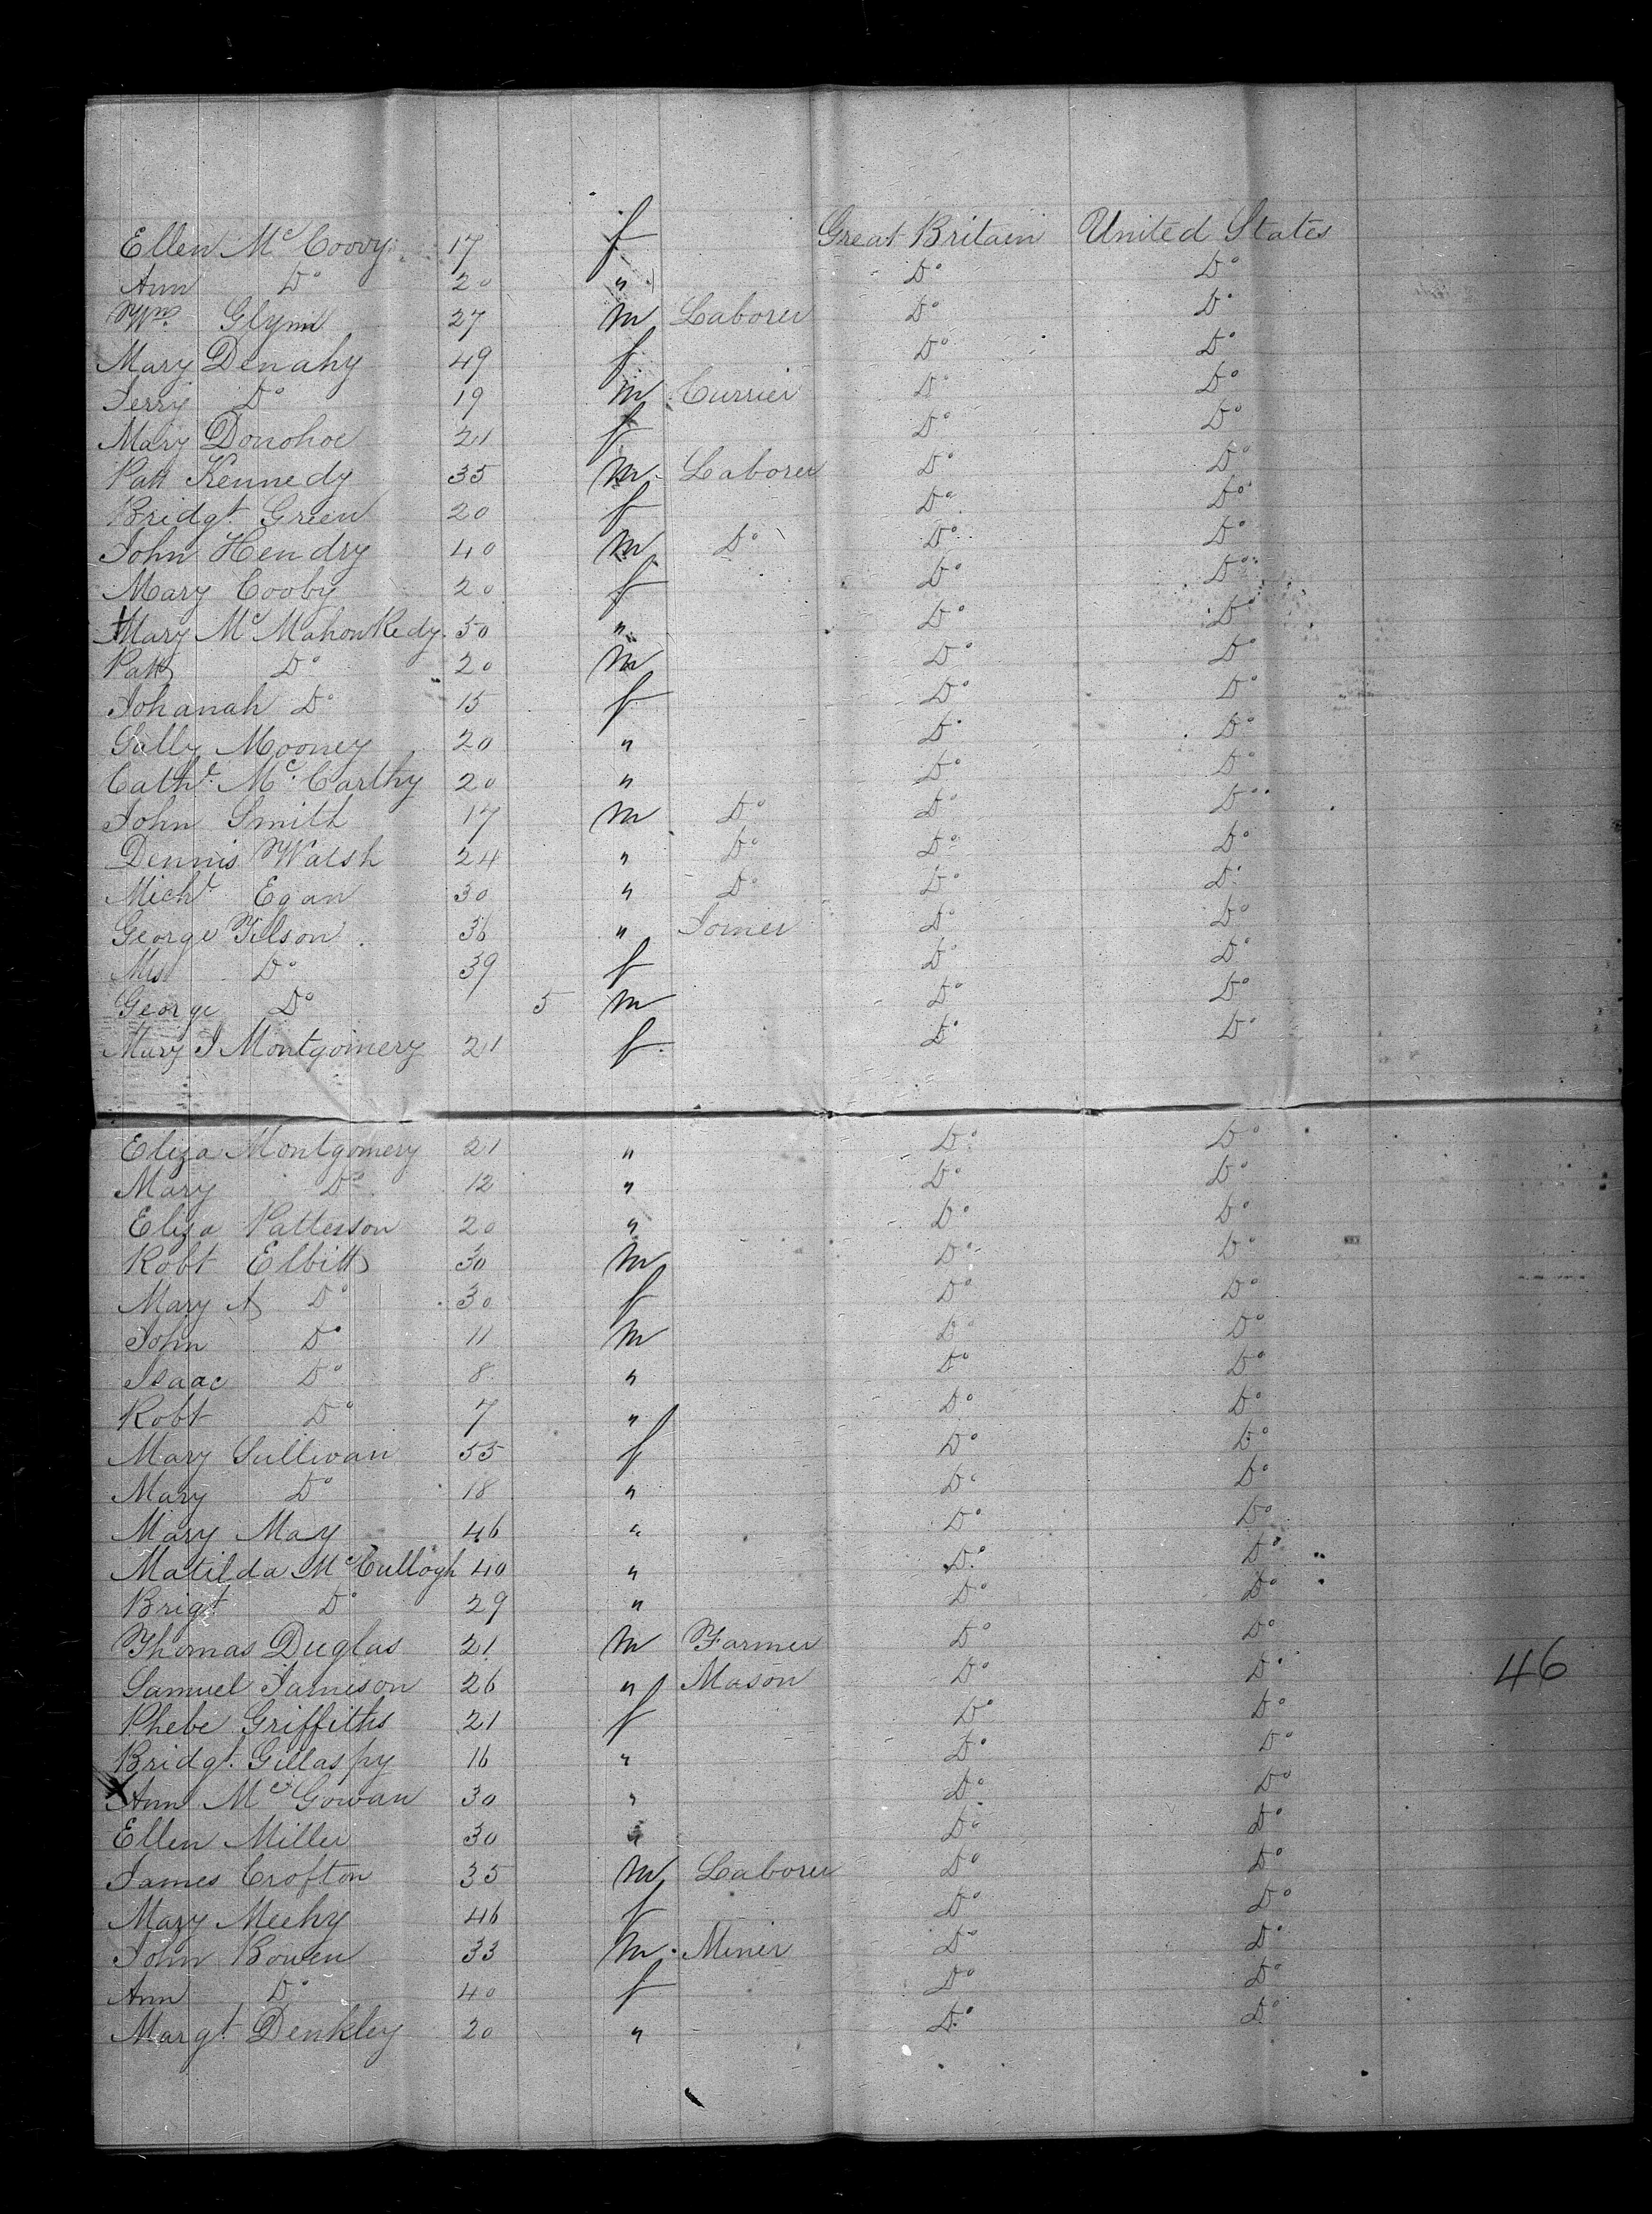 Ellen McCoovy 17 f Great Britain United States
Ann Do 20 " Do Do
Wm Glynn 27 m Laborer Do Do
Mary Denahy 49 f Do Do
Jerry Do 19 m Currier Do Do
Mary Donohoe 21 f Do Do
Patt Kennedy 35 m Laborer Do Do
Bridgt. Green 20 f Do Do
John Hendry 40 m Do Do Do
Mary Cooby 20 f Do Do
Mary McMahon Redy. 50 " Do Do
Patt Do 20 m Do Do
Johanah Do 15 f Do Do
Sally Mooney 20 " Do Do
Cathe. McCarthy 20 " Do Do
John Smith 17 m Do Do Do
Dennis Walsh 24 " Do Do Do
Michl Egan 30 " Do Do Do
George Tilson 36 " Joiner Do Do
Mrs Do 39 f Do Do
George Do 5 m Do Do
Mary J Montgomery 21 f Do Do
Eliza Montgomery 21 " Do Do
Mary Do 12 " Do Do
Eliza Patterson 20 " Do Do
Robt Elbitt 30 m Do Do
Mary A Do 30 f Do Do
John Do 11 m Do Do
Isaac Do 8 " Do Do
Robt Do 7 " Do Do
Mary Sullivan 55 f Do Do
Mary Do 18 " Do Do
Mary May 46 " Do Do
Matilda McCullogh 40 " Do Do
Brigt Do 29 " Do Do
Thomas Duglas 21 m Farmer Do Do
Samuel Jamison 26 " Mason Do Do 46
Phebe Griffiths 21 f Do Do
Bridgt. Gillaspy 16 " Do Do
X Ann McGowan 30 " Do Do
Ellen Miller 30 " Do Do
James Crofton 35 m Laborer Do Do
Mary Meehy 46 f Do Do
John Bowen 33 m Miner Do Do
Ann Do 40 f Do Do
Margt. Denkley 20 " Do Do